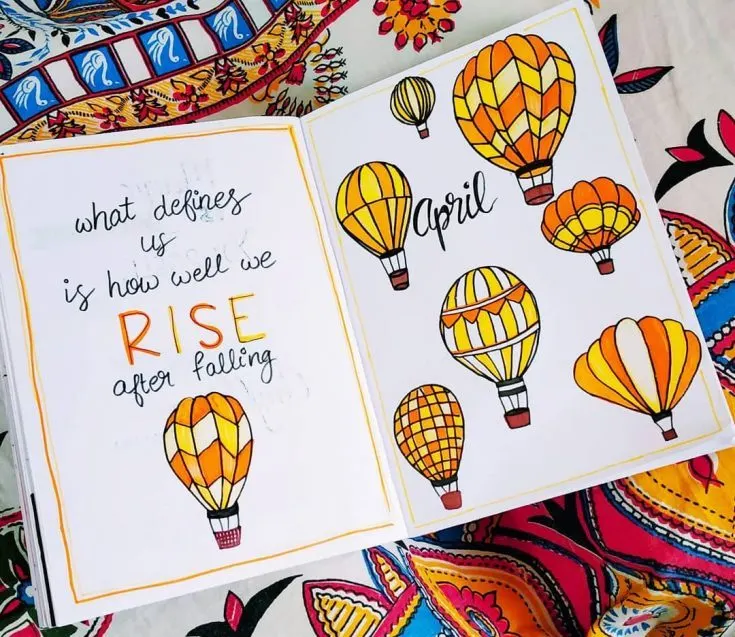 what defines
us
is how well we
RISE
after falling
April